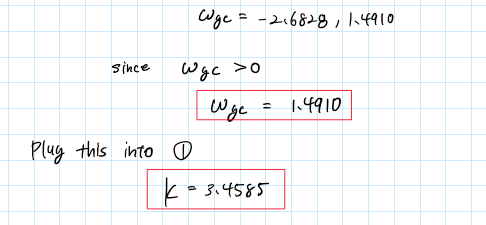 ωgc = -2.6828, 1.4910
since ωgc >0
ωgc = 1.4910
Plug this into ①
k = 3.4585